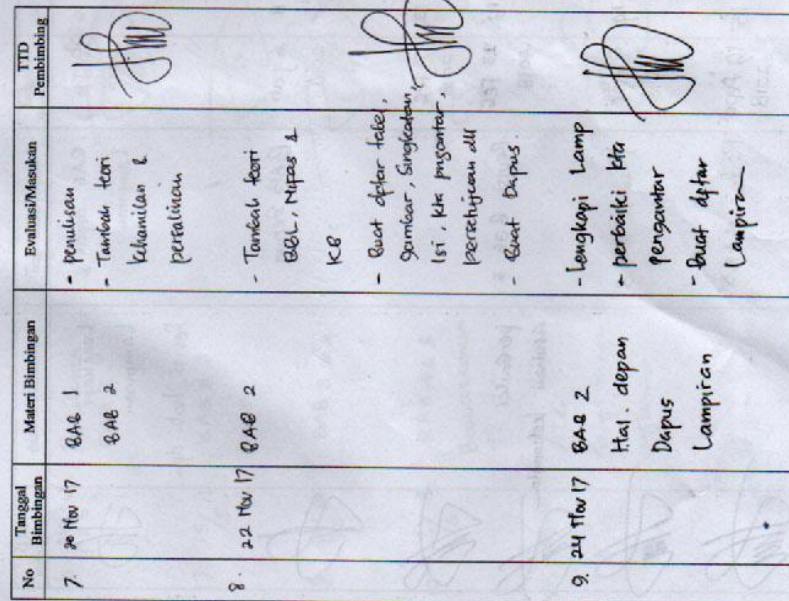 No
Tanggal
Bimbingan
Materi Bimbingan
Evaluasi/Masukan
TTD
Pembimbing
7.
20 Nov 17
BAB 1
BAB 2
- penulisan
- Tambah teori
kehamilan &
persalinan
8.
22 Nov 17
BAB 2
- Tambah teori
BBL, Nifas &
KB
- Buat dftar tabel,
gambar, Singkatan,
Isi, kta pngantar,
persetujuan dll
- Buat Dapus.
9.
24 Nov 17
BAB 2
Hal. depan
Dapus
Lampiran
- Lengkapi Lamp
- perbaiki kta
pengantar
- buat dftar
Lampiran